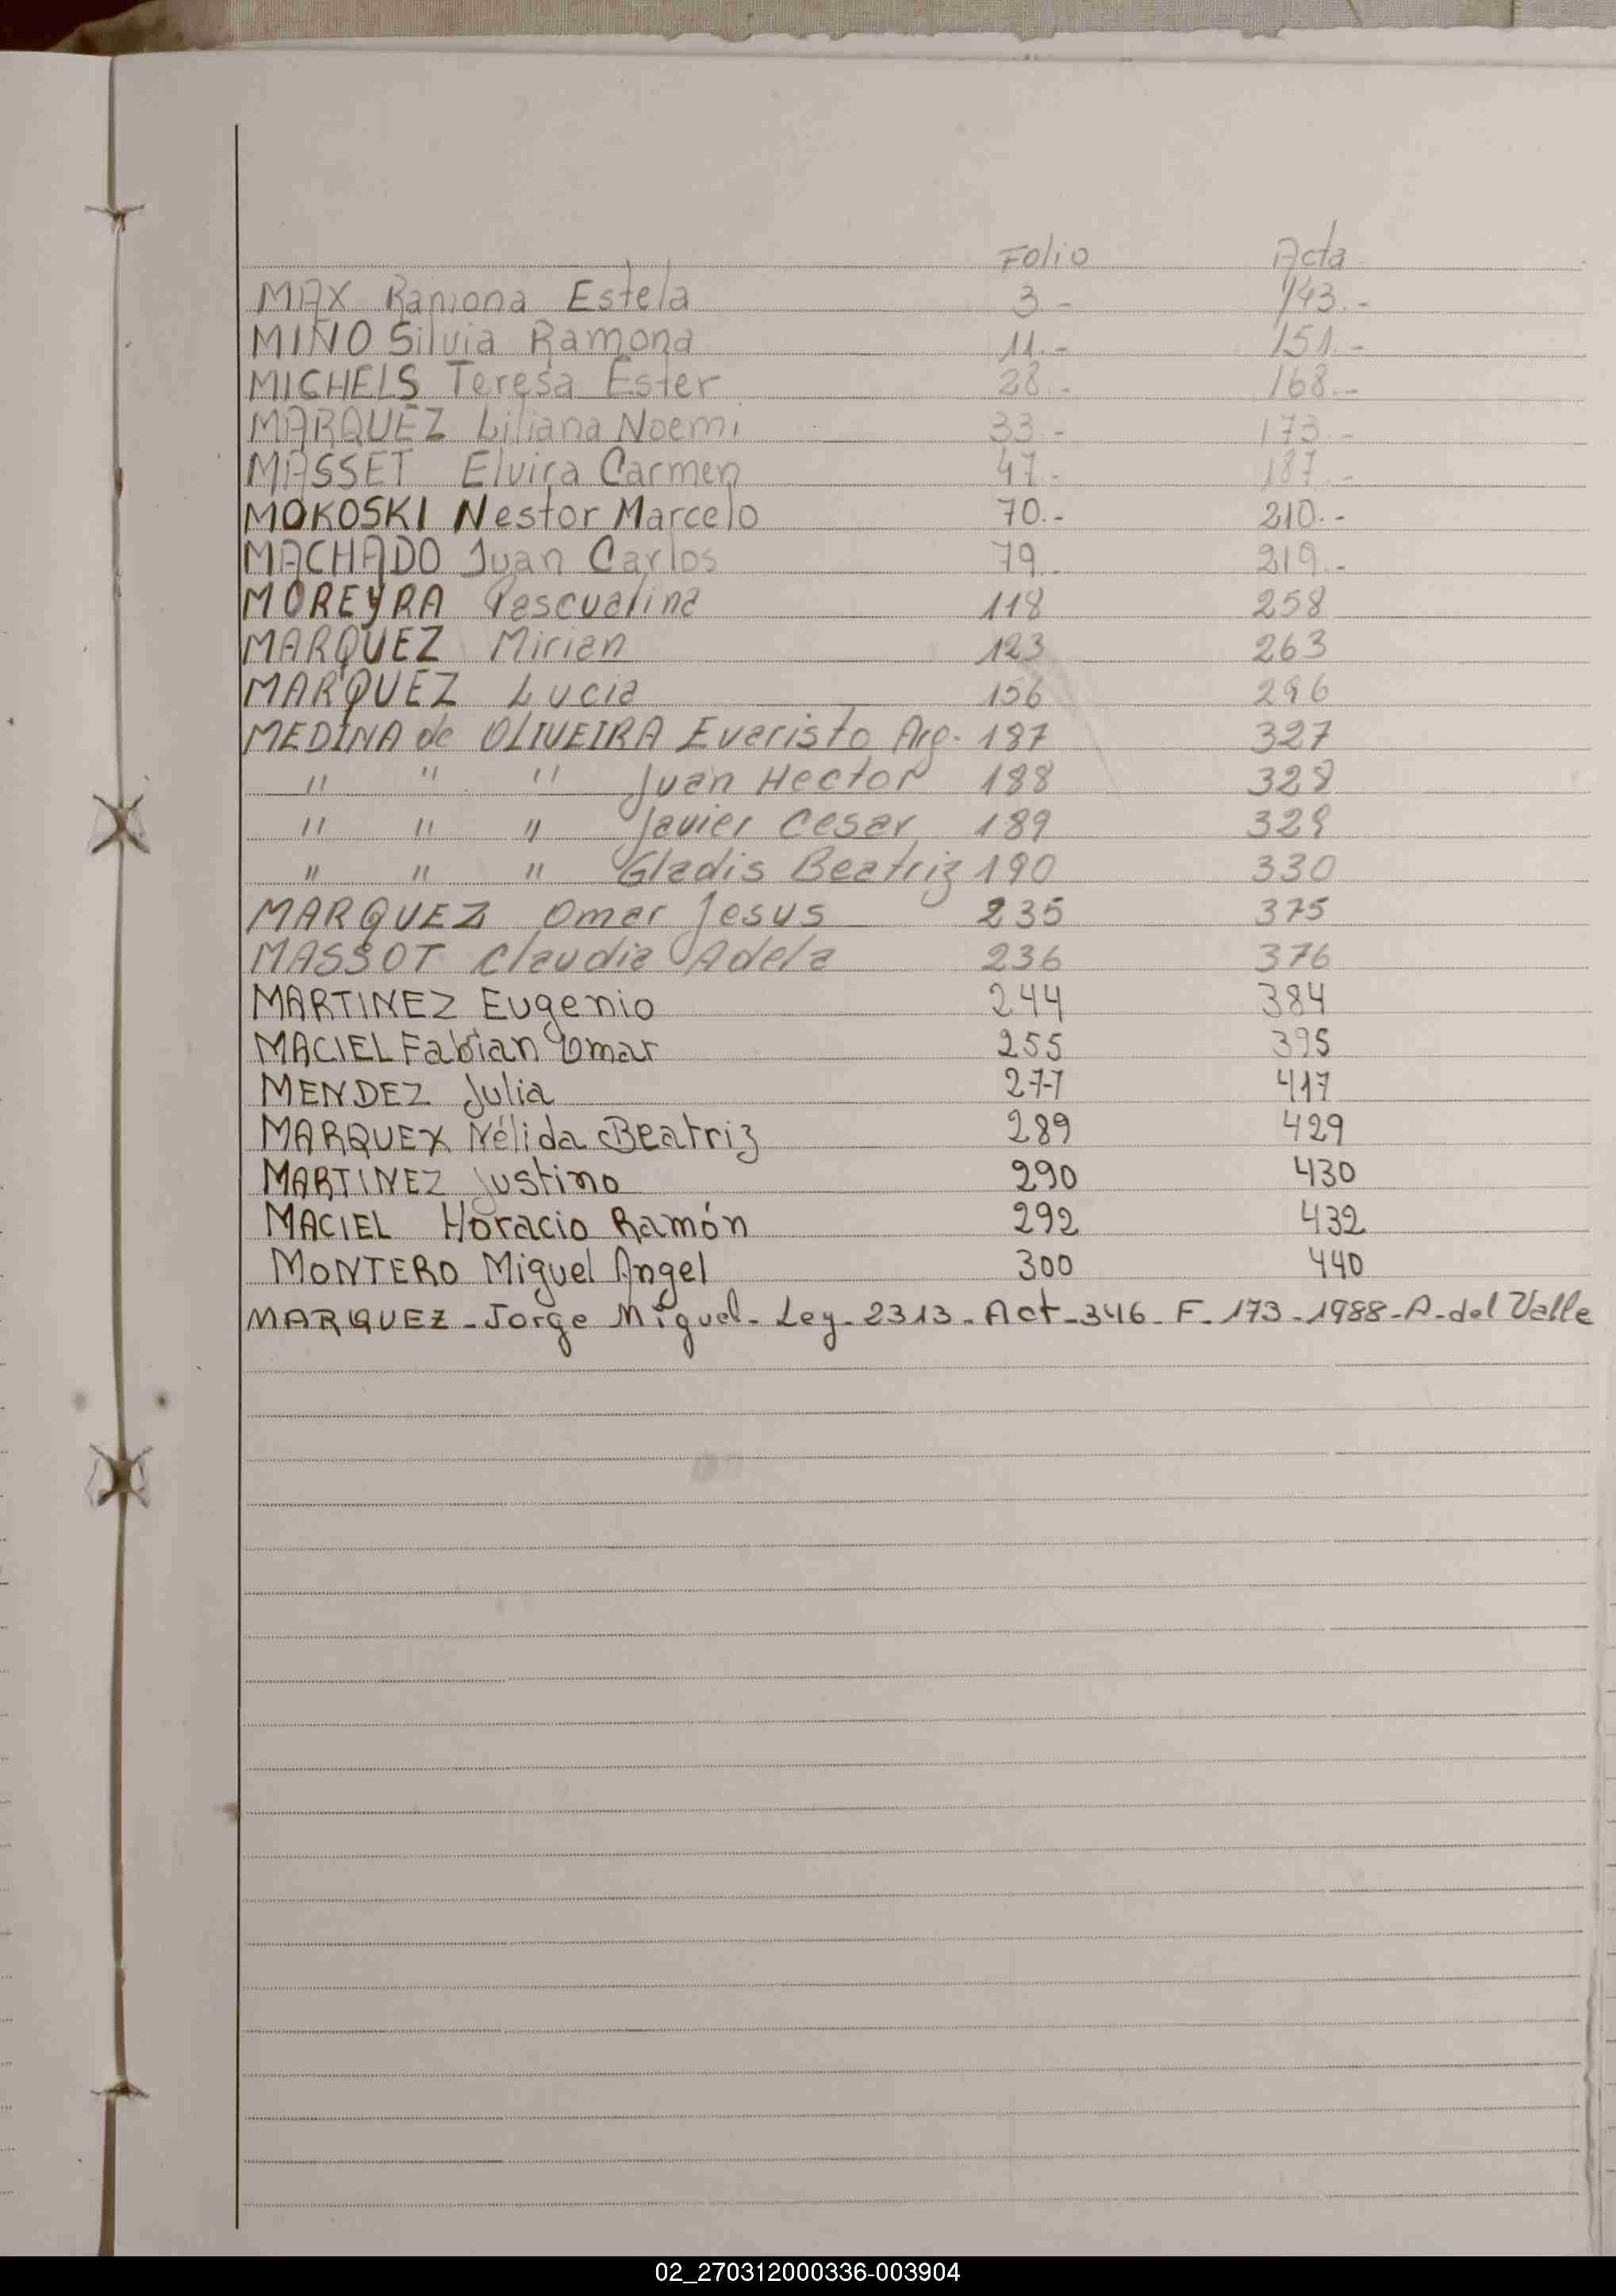 Folio Acta
MAX Ramona Estela 3.- 143.-
MIÑO Silvia Ramona 11.- 151.-
MICHELS Teresa Ester 28.- 168.-
MARQUEZ Liliana Noemi 33.- 173.-
MASSET Elvira Carmen 47.- 187.-
MOKOSKI Nestor Marcelo 70.- 210.-
MACHADO Juan Carlos 79.- 219.-
MOREYRA Pascualina 118 258
MARQUEZ Mirian 123 263
MARQUEZ Lucia 156 296
MEDINA de OLIVEIRA Evaristo Arg. 187 327
" " " Juan Hector 188 328
" " " Javier Cesar 189 329
" " " Gladis Beatriz 190 330
MARQUEZ Omar Jesus 235 375
MASSOT Claudia Adela 236 376
MARTINEZ Eugenio 244 384
MACIEL Fabian Omar 255 395
MENDEZ Julia 277 417
MARQUEX Nélida Beatriz 289 429
MARTINEZ Justino 290 430
MACIEL Horacio Ramón 292 432
MONTERO Miguel Angel 300 440
MARQUEZ - Jorge Miguel - Ley - 2313 - Act - 346 - F - 173 - 1988 - A - del Valle
02_270312000336-003904